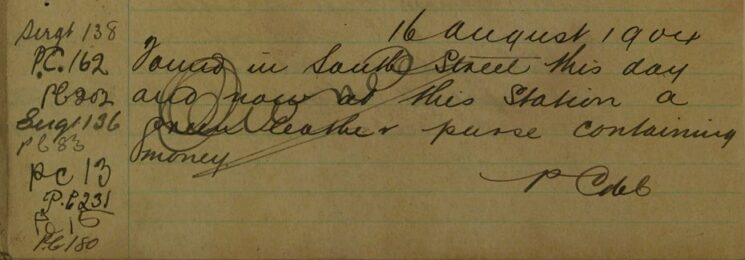 Sergt 138
P.C. 162
PC 202
Sergt 136
PC 83
PC 13
P.C 231
PC 180
16 August 1904
Found in South Street this day
and now at this Station a
green leather purse containing
money